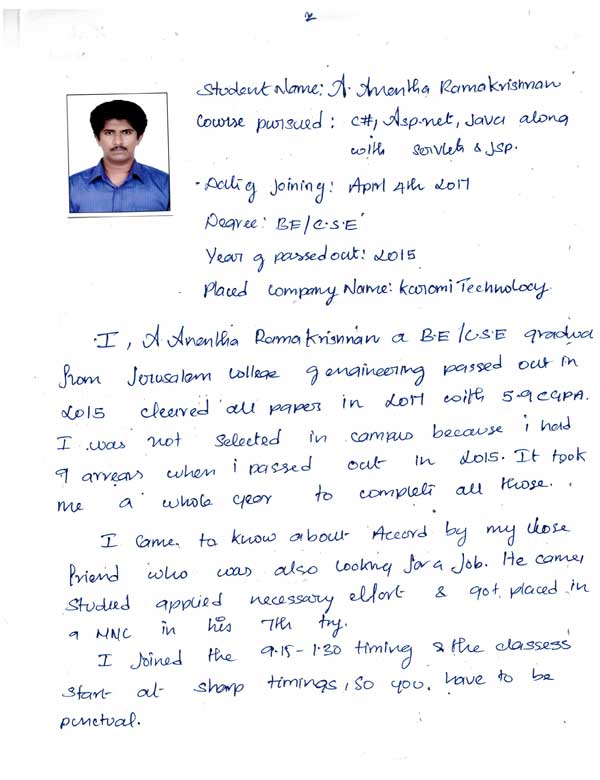 2
Student Name: A. Anantha Ramakrishnan
Course pursued: C#, Asp.net, Java along
with servlets & JSP.
Date of Joining: April 4th 2017
Degree: BE/C.S.E
Year of passed out: 2015
Placed Company Name: Karomi Technology.
I, A Anantha Ramakrishnan a B.E/C.S.E gradua
from Jerusalem college of engineering passed out in
2015 cleared all paper in 2017 with 5.9 CGPA.
I was not selected in campus because i had
9 arrears when i passed out in 2015. It took
me a whole year to complete all those.
I Came to know about Accord by my close
friend who was also looking for a Job. He came,
Studied applied necessary effort & got placed in
a MNC in his 7th try.
I Joined the 9.15-1.30 timing & the classess
start at sharp timings, so you have to be
punctual.